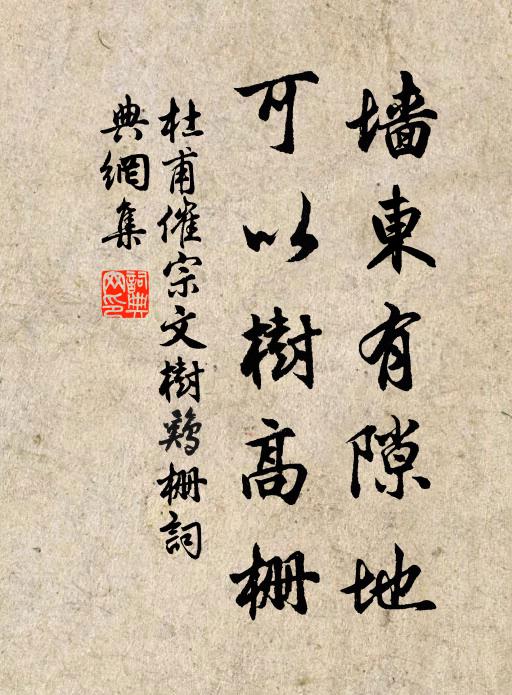 墙東有隙地
可以樹高栅
杜甫催宗文樹鷄栅詞
典網集
詞典网印